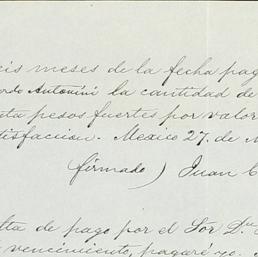 eis meses de la fecha pag
ordo Antonini la cantidad de
ta pesos fuertes por valor
tisfaccion. Mexico 27. de
firmado) Juan C
lta de pago por el Sor Dn
vencimiento, pagaré yo.